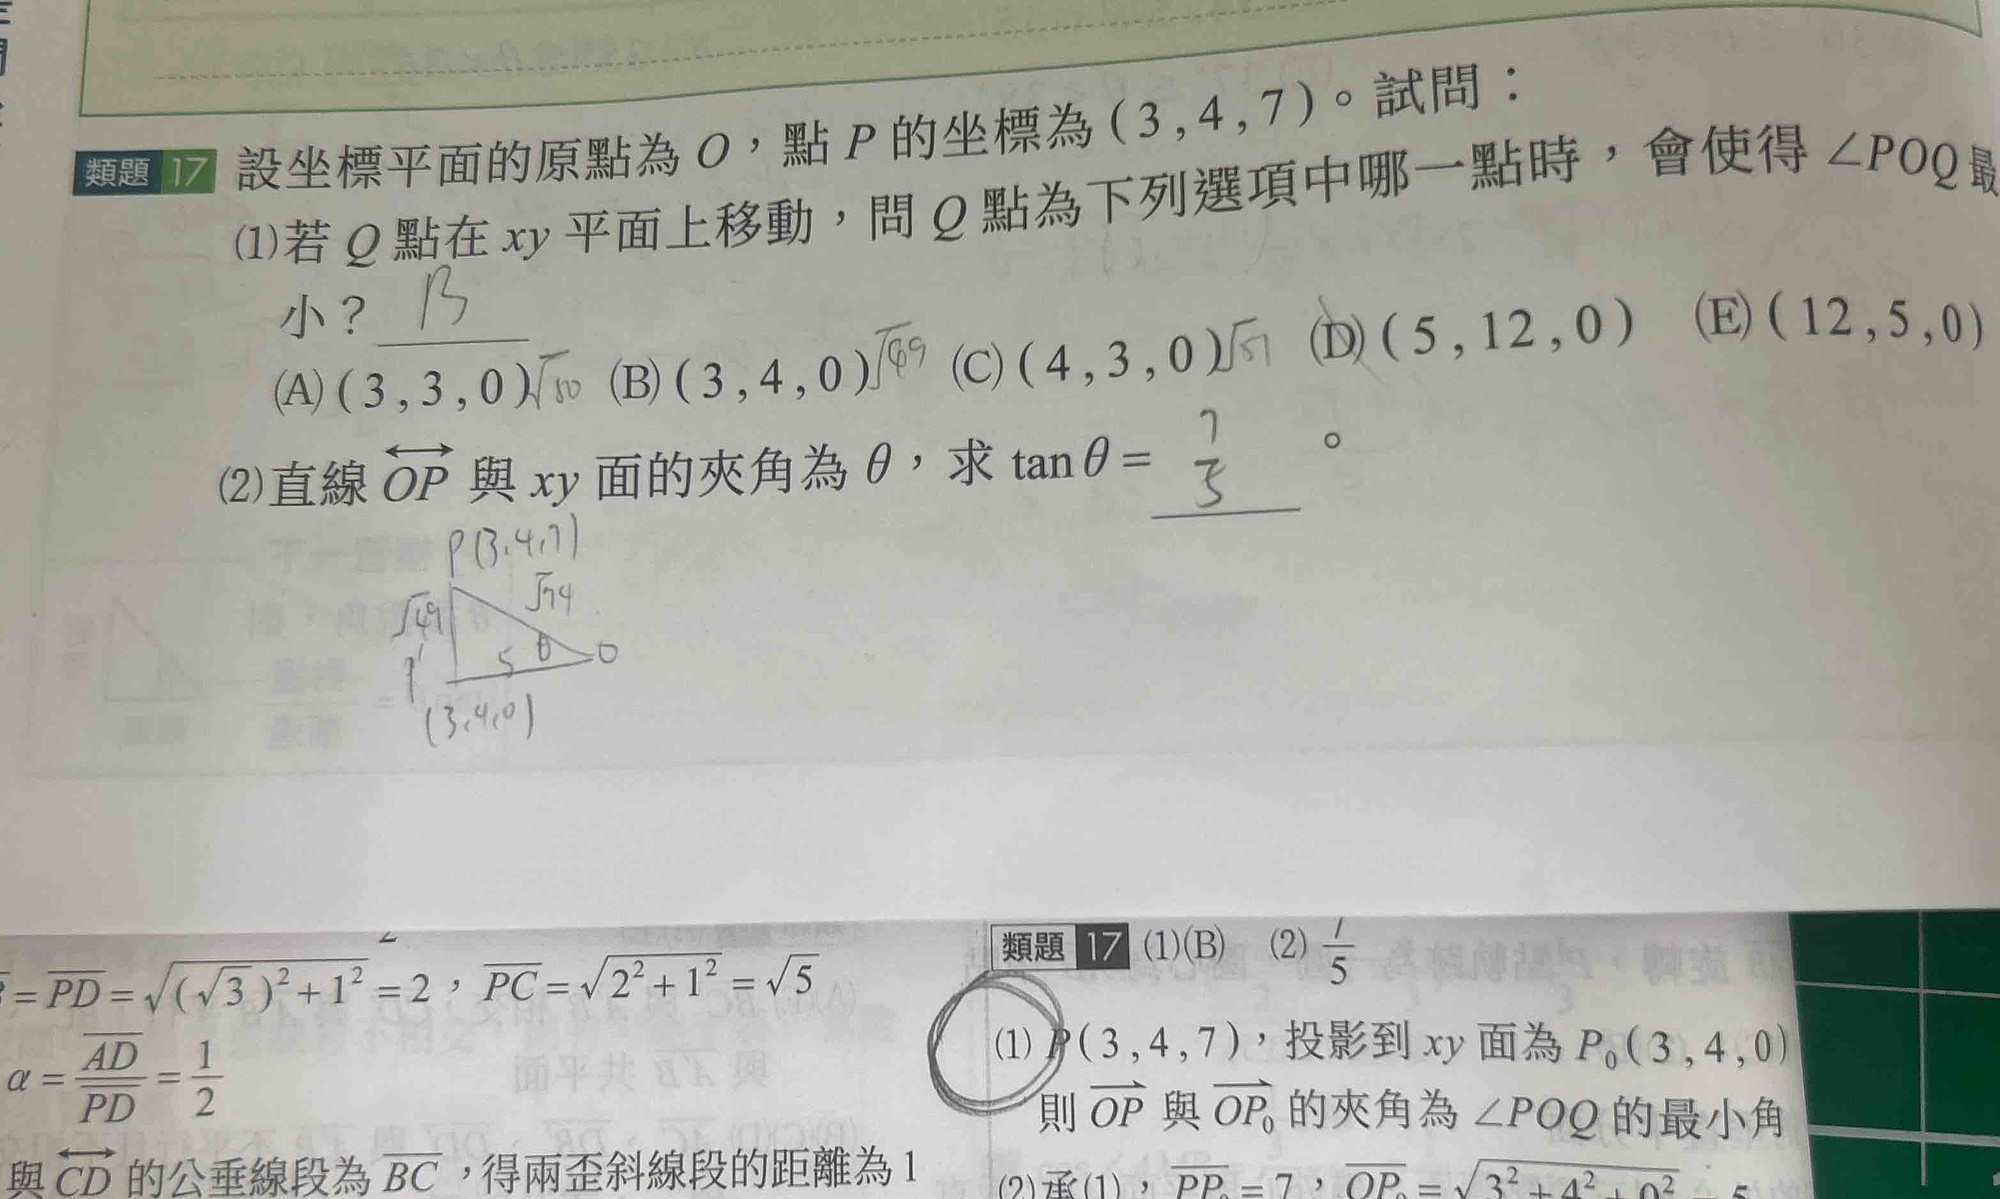 類題 17 設坐標平面的原點為 O，點 P 的坐標為 ( 3 , 4 , 7 )。試問：
(1)若 Q 點在 xy 平面上移動，問 Q 點為下列選項中哪一點時，會使得 ∠POQ 最
小？ B
(A) ( 3 , 3 , 0 ) √50 (B) ( 3 , 4 , 0 ) √49 (C) ( 4 , 3 , 0 ) √51 (D) ( 5 , 12 , 0 ) (E) ( 12 , 5 , 0 )
(2)直線 OP 與 xy 面的夾角為 θ，求 tan θ = 7/5 。
P(3,4,7)
√49 √74
θ
P' 5 O
(3,4,0)
= PD = √((√3)² + 1²) = 2，PC = √(2² + 1²) = √5
α = AD/PD = 1/2
與 CD 的公垂線段為 BC，得兩歪斜線段的距離為 1
類題 17 (1)(B) (2) 7/5
(1) P ( 3 , 4 , 7 )，投影到 xy 面為 P₀ ( 3 , 4 , 0 )
則 OP 與 OP₀ 的夾角為 ∠POQ 的最小角
(2)承(1)，PP₀ = 7，OP₀ = √(3² + 4² + 0²) = 5